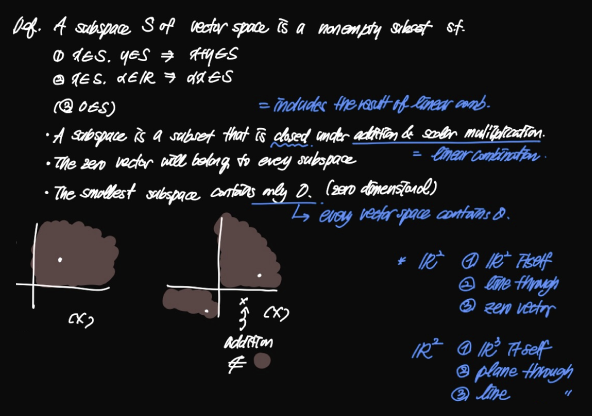 Def. A subspace S of vector space is a nonempty subset s.t.
① x∈S. y∈S ⇒ x+y∈S
② x∈S. α∈ℝ ⇒ αx∈S
(③ 0∈S)
= includes the result of linear comb.
· A subspace is a subset that is closed under addition & scalar multiplication.
· The zero vector will belong to every subspace
= linear combination.
· The smallest subspace contains only 0. (zero dimensional)
↳ every vector space contains 0.
(X)
(X)
addition
∉
* ℝ² ① ℝ² itself
② line through
③ zero vector
ℝ² ① ℝ³ itself
② plane through
③ line "